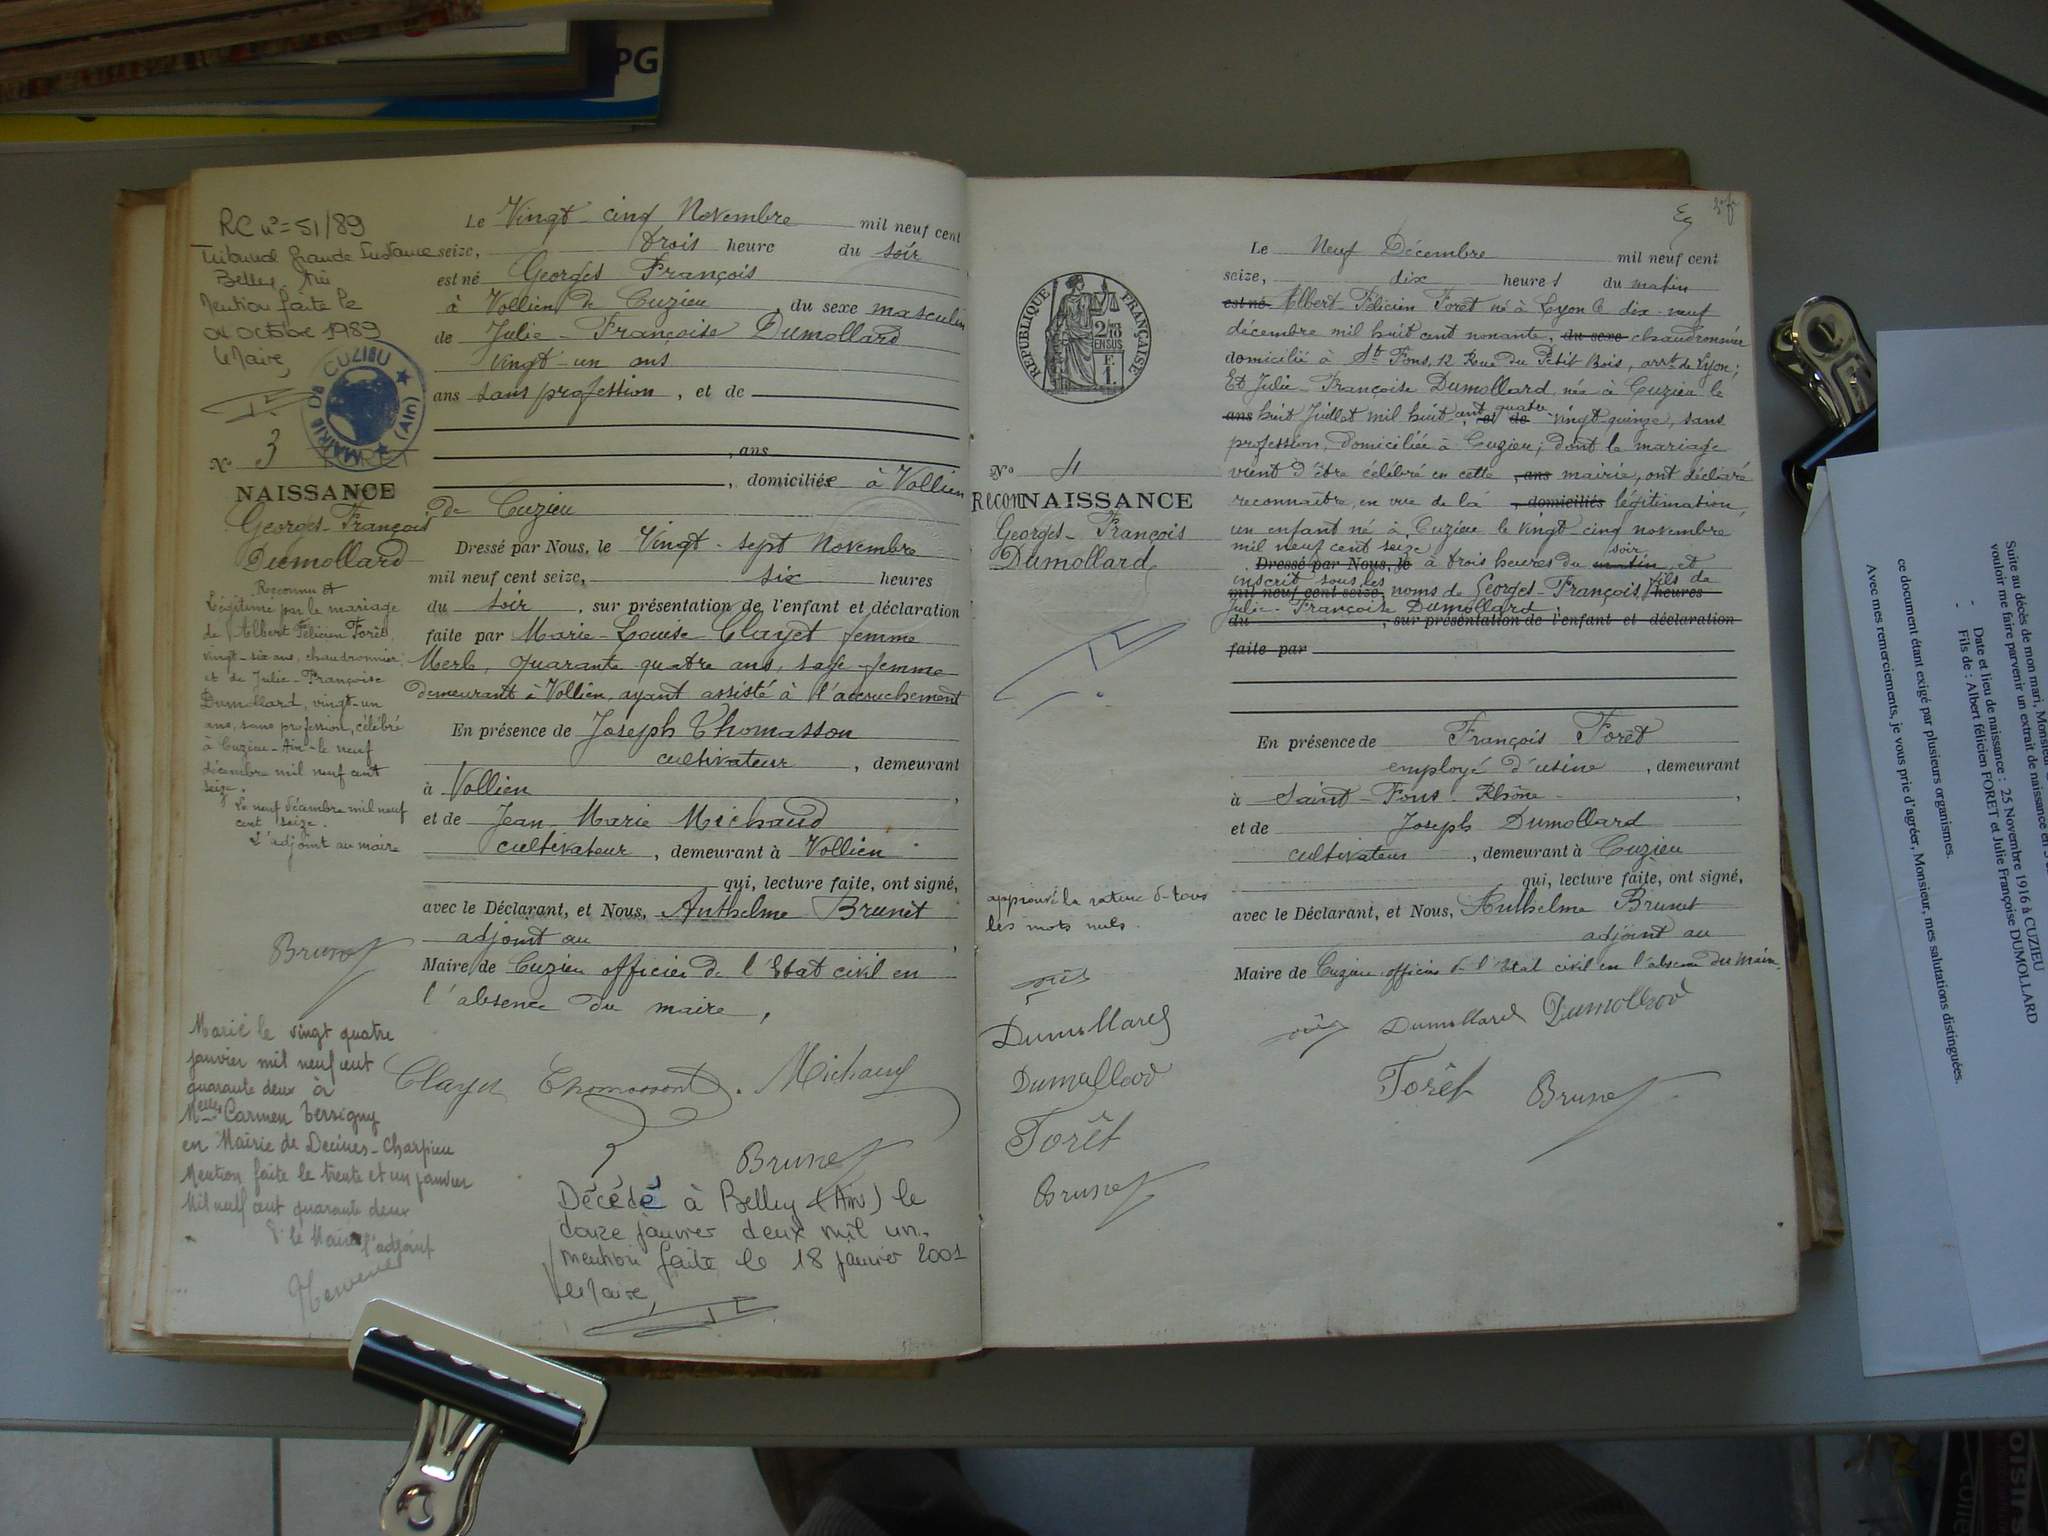 PG
RC n°=51/89
Tribunal Grande Instance
Belley Ain
Mention faite le
04 octobre 1989
le Maire,
MAIRIE DE CUZIEU
(Ain)
N° 3
NAISSANCE
Georges-François
Dumollard
Reconnu et
Légitimé par le mariage
de Albert Félicien Forêt,
vingt-six ans, chaudronnier,
et de Julie-Françoise
Dumollard, vingt-un
ans, sans profession, célébré
à Cuzieu-Ain-le neuf
décembre mil neuf cent
seize.
Le neuf décembre mil neuf
cent seize.
L'adjoint au maire
Brunet
Marié le vingt quatre
janvier mil neuf cent
quarante deux à
Melle Carmen Tersigny
en Mairie de Decines-Charpieu
Mention faite le trente et un janvier
Mil neuf cent quarante deux
P. le Maire l'adjoint
Le Vingt-cinq Novembre mil neuf cent
seize, trois heure du soir
est né Georges François
à Vollien de Cuzieu, du sexe masculin
de Julie-Françoise Dumollard
vingt-un ans
ans sans profession, et de
, ans
, domiciliée à Vollien
de Cuzieu
Dressé par Nous, le Vingt-sept Novembre
mil neuf cent seize, six heures
du soir, sur présentation de l'enfant et déclaration
faite par Marie-Louise Clayet femme
Merle, quarante-quatre ans, sage-femme
demeurant à Vollien, ayant assisté à l'accouchement
En présence de Joseph Thomasson
cultivateur, demeurant
à Vollien,
et de Jean Marie Michaud
cultivateur, demeurant à Vollien
qui, lecture faite, ont signé,
avec le Déclarant, et Nous, Anthelme Brunet
adjoint au,
Maire de Cuzieu officier de l'Etat civil en
l'absence du maire,
Clayet Thomasson Michaud
Brunet
Décédé à Belley (Ain) le
douze janvier deux mil un.
mention faite le 18 janvier 2001
le Maire,
RÉPUBLIQUE FRANÇAISE
2/10
EN SUS
F.
1.
N° 4
ReconNAISSANCE
Georges-François
Dumollard
approuvé la rature de tous
les mots nuls.
Dumollard
Dumollard
Forêt
Brunet
Le Neuf Décembre mil neuf cent
seize, dix heures du matin
est né Albert-Félicien Foret né à Lyon le dix-neuf
décembre mil huit cent nonante, du sexe chaudronnier
domicilié à St Fons, 12 Rue du Petit Bois, arrt de Lyon;
Et Julie-Françoise Dumollard, née à Cuzieu le
ans huit Juillet mil huit cent quatre, et de vingt-quinze, sans
profession, domiciliée à Cuzieu; dont le mariage
vient d'être célébré en cette , ans mairie, ont déclaré
reconnaître, en vue de la , domiciliés légitimation,
un enfant né à Cuzieu le vingt-cinq novembre
mil neuf cent seize soir
Dressé par Nous, le à trois heures du matin, et
inscrit sous les fils de
mil neuf cent seize, noms de Georges-François, heures
Julie-Françoise Dumollard
du , sur présentation de l'enfant et déclaration
faite par
En présence de François Forêt
employé d'usine, demeurant
à Saint-Fons-Rhône-,
et de Joseph Dumollard
cultivateur, demeurant à Cuzieu
qui, lecture faite, ont signé,
avec le Déclarant, et Nous, Anthelme Brunet
adjoint au
Maire de Cuzieu officier de l'Etat civil en l'absence du maire.
Dumollard Dumollard
Forêt Brunet
Suite au décès de mon mari, Monsieur
vouloir me faire parvenir un extrait de naissance en
- Date et lieu de naissance : 25 Novembre 1916 à CUZIEU
- Fils de : Albert félicien FORET et Julie Françoise DUMOLLARD
ce document étant exigé par plusieurs organismes.
Avec mes remerciements, je vous prie d'agréer, Monsieur, mes salutations distinguées.